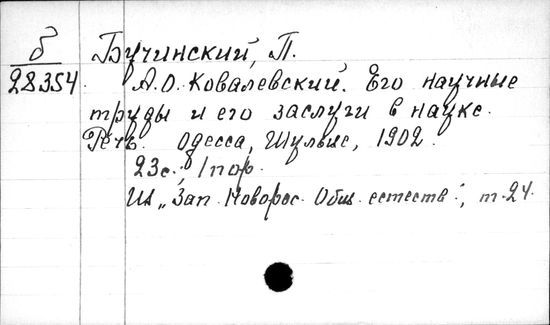 б
28354
Бучинский, П.
А.О. Ковалевский. Его научные
труды и его заслуги в науке.
Речь. Одесса, Шульце, 1902.
23с.; 1 пор.
Из „Зап. Новорос. Общ. естеств.", т. 24.